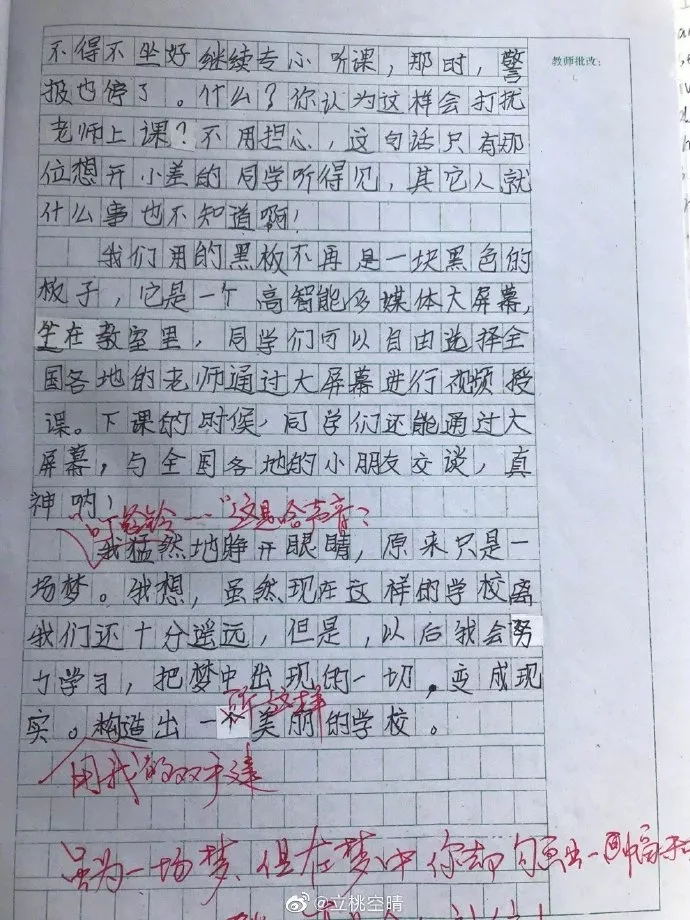 不得不坐好继续专心听课，那时，警
教师批改：
报也停了。什么？你认为这样会打扰
老师上课？不用担心，这句话只有那
位想开小差的同学听得见，其它人就
什么事也不知道啊！
我们用的黑板不再是一块黑色的
板子，它是一个高智能多媒体大屏幕，
坐在教室里，同学们可以自由选择全
国各地的老师通过大屏幕进行视频授
课。下课的时候，同学们还能通过大
屏幕，与全国各地的小朋友交谈，真
神呐！
"叮铃铃……"这是啥声音？
我猛然地睁开眼睛，原来只是一
场梦。我想，虽然现在这样的学校离
我们还十分遥远，但是，以后我会努
力学习，把梦中出现的一切，变成现
所这样
实。构造出一美丽的学校。
用我的双手建
虽为一场梦，但在梦中你却勾画出一
@立桃空晴